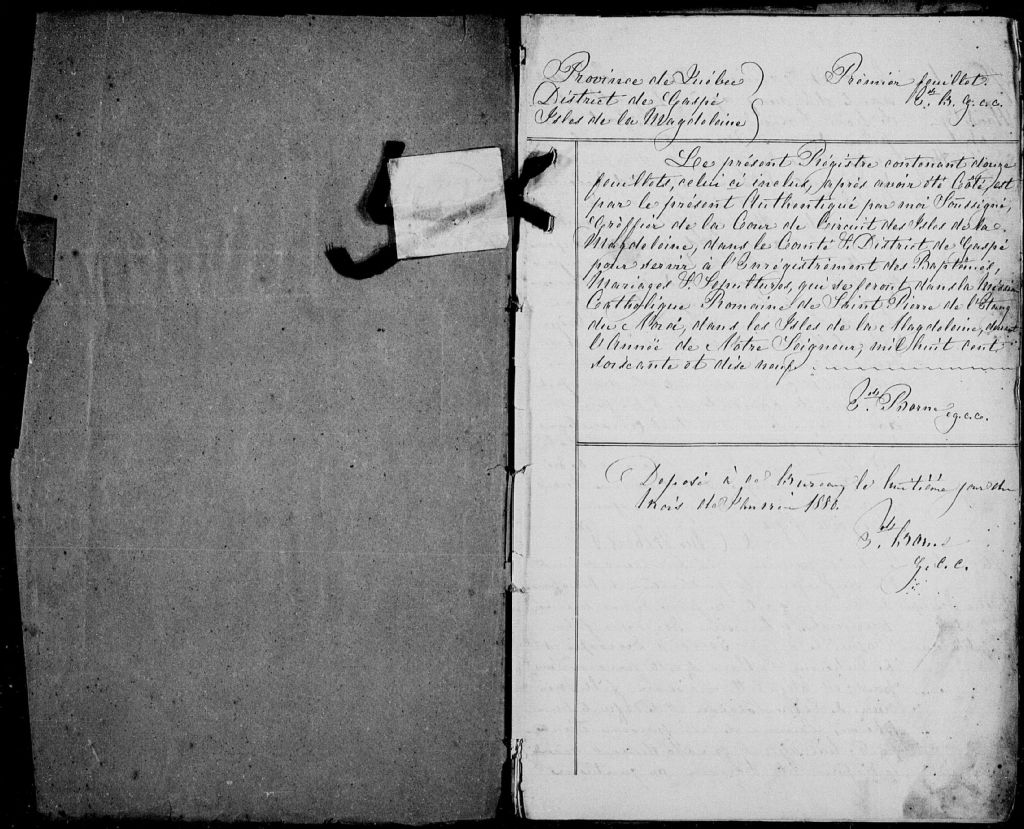 Province de Québec
District de Gaspé
Isles de la Magdeleine
Prémier feuillet.
B. g. c. c.
Le présent Régistre contenant douze
feuillets, celui ci inclus, après avoir été Coté, est
par le présent Authentiqué par moi Soussigné,
Gréffier de la Cour de Circuit des Isles de la
Magdeleine, dans le Comté & District de Gaspé
pour servir à l'Enrégistrément des Baptêmes,
Mariages & Sépultures, qui se feront dans la Mission
Catholique Romaine de Saint Pierre de l'Etang
du Nord, dans les Isles de la Magdeleine, durant
l'Année de Notre Seigneur, mil huit cent
soixante et dise neuf
Borne
g.c.c.
Déposé à ce bureau, le huitième jour du
mois de Janvier 1880.
Borne
g. c. c.